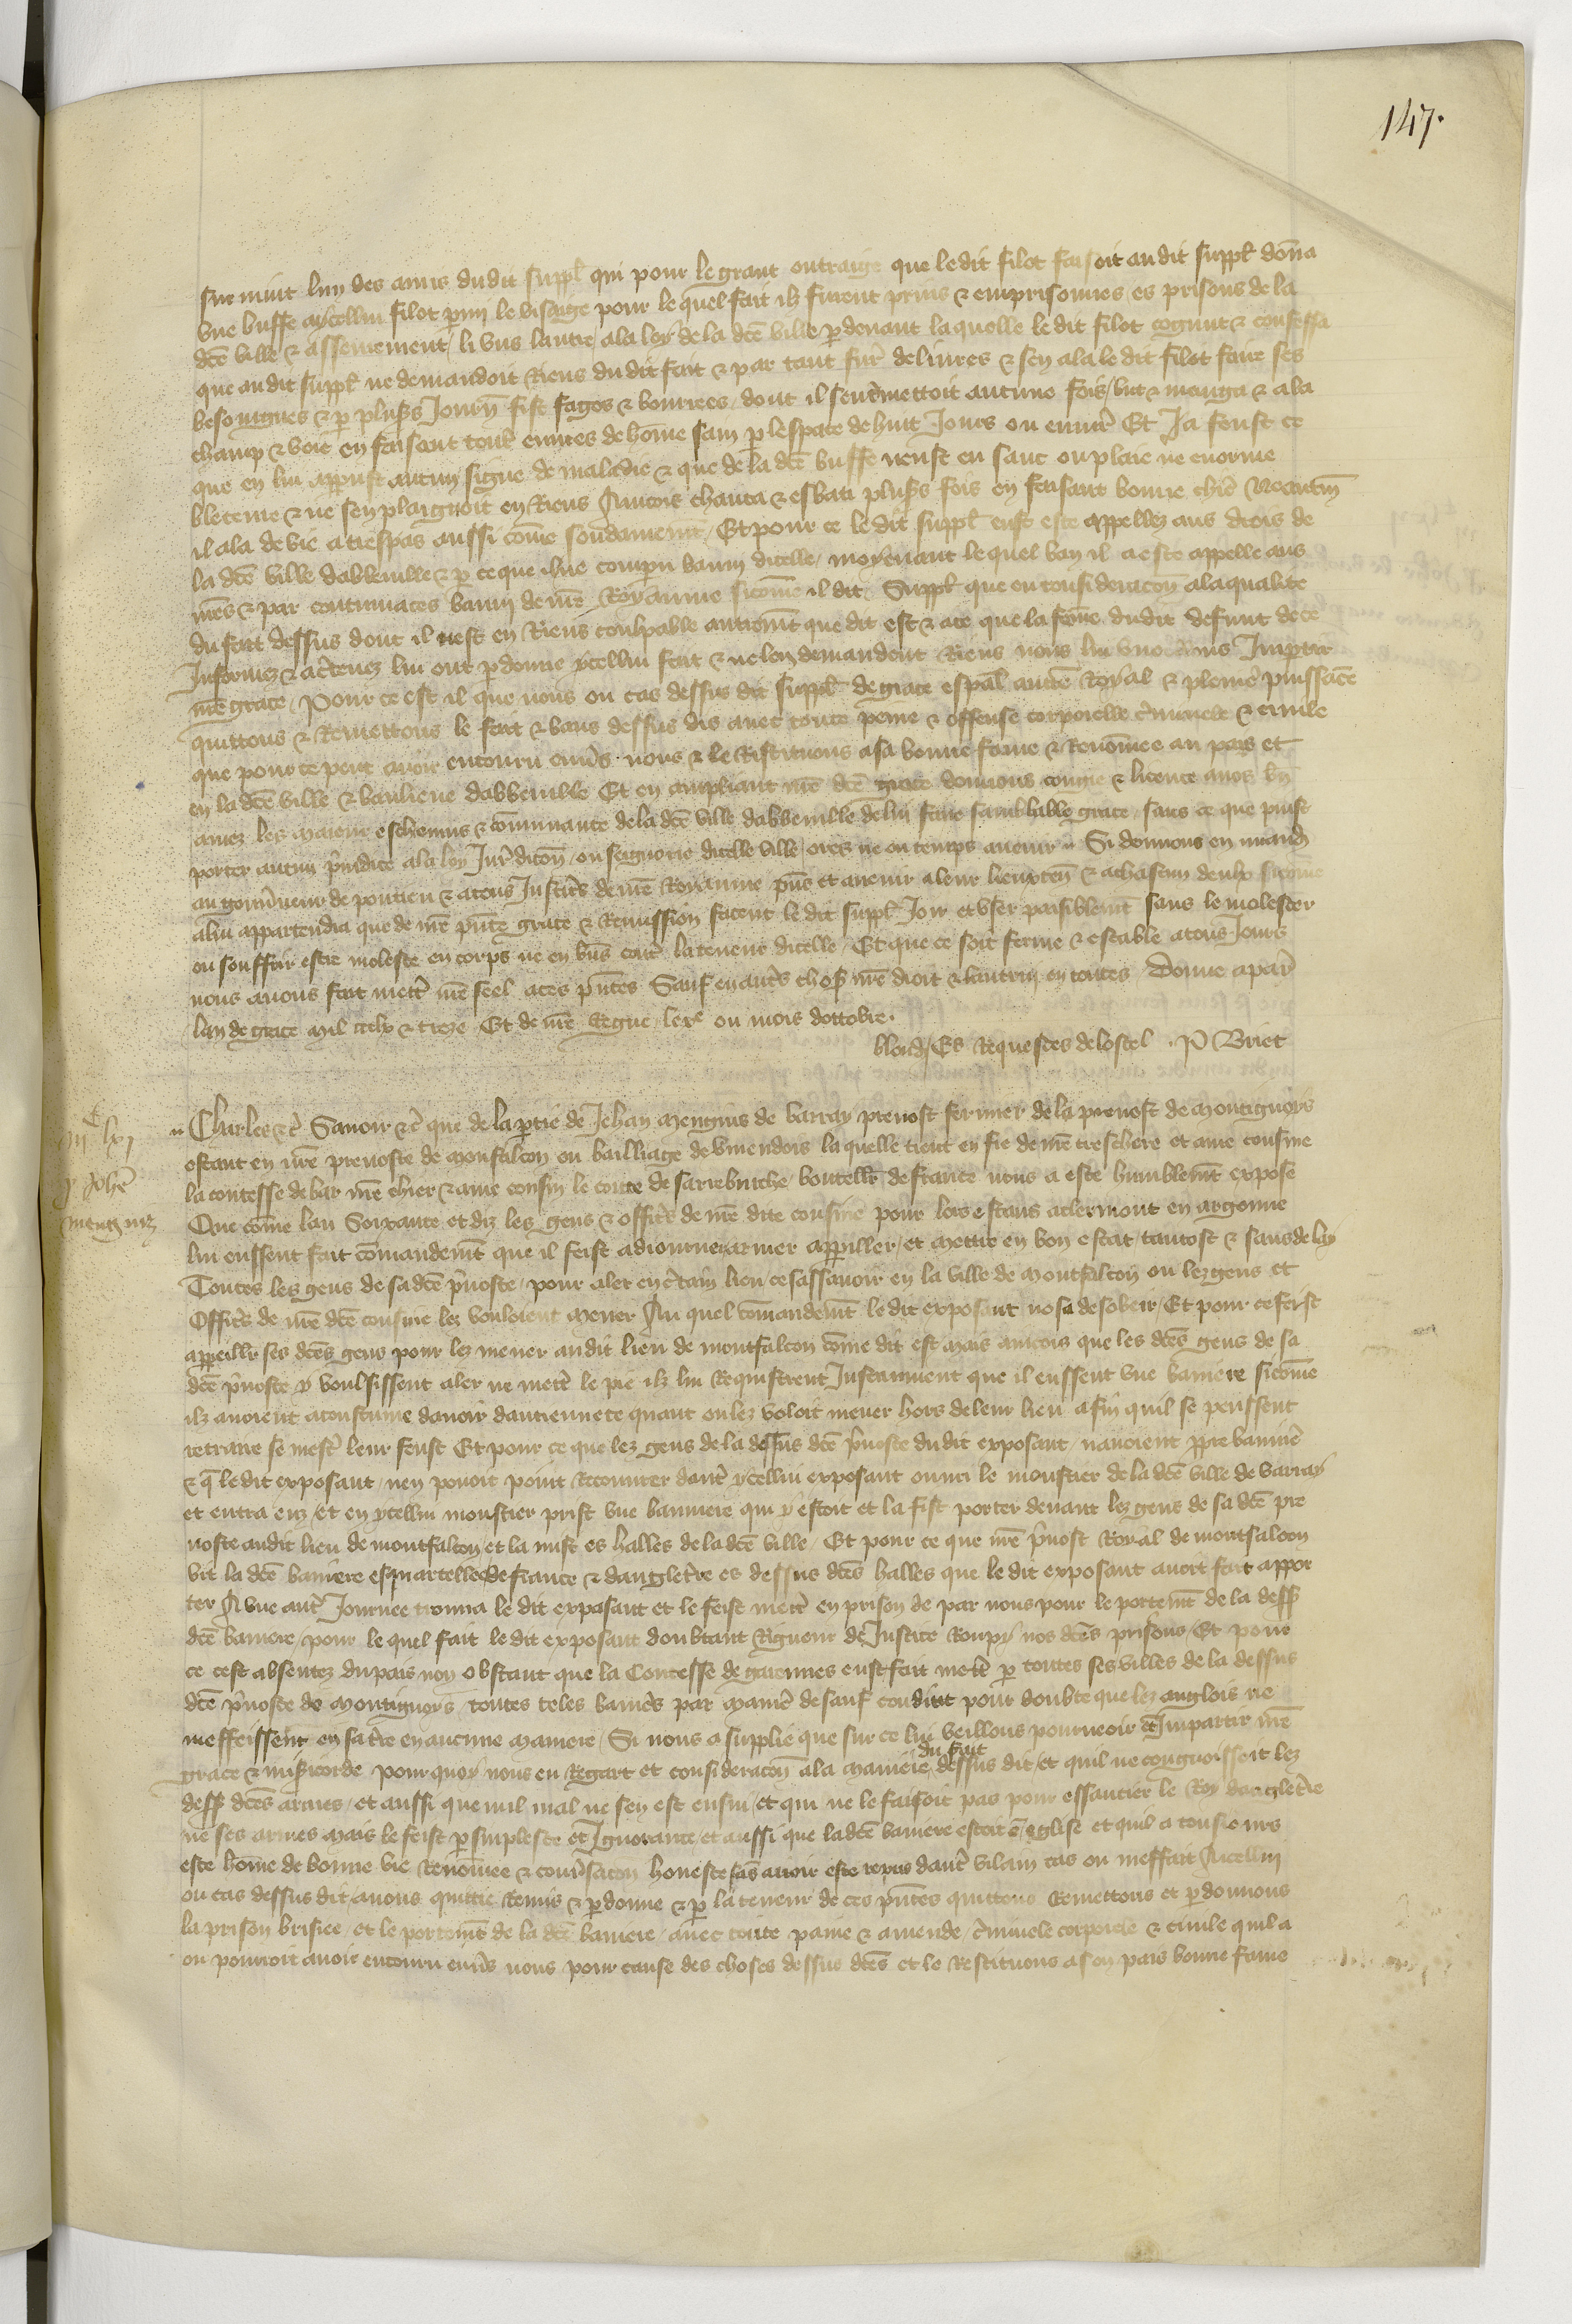 147.
survint luy des amis dudit suppl̃ qui pour le grant outraige que ledit filot faisoit audit suppl̃ dõna
vne buffe aycellui filot p̱mi le visaige pour le quel fait ilz furent prins & emprisonnes es prisons de la
dc̃e ville & asseurement li vns lautre ala loy de la dc̃e ville p̱deuant laquelle le dit filot cognut & confessa
que audit suppl̃ ne demandoit Riens du dit fait & par tant fur̃ deliures & sen ala le dit filot faire ses
besongnes & p̱ plusrs Journ̄ fist fagos & bourrees dont il sentremettoit aucune fois / but & menga & ala
champ & voie en faisant toutes euures de hõme sain p̱ lespace de huit Jours ou enuir̃ Et Ja feust ce
que en lui apparust aucun signe de maladie & que de la dc̃e buffe neust eu sanc ou plaie ne enorme
bleceure & ne sen plaignoit en Riens Aincois chanta & esbati plusrs fois en faisant bonne chier̃ Neantm̃
il ala de vie a trespas aussi cõme soudainemt̃ / Et pour ce le dit suppl̃ eust este appellez aus drois de
la dc̃e ville dabbeuille & p̱ ce que il ne comparu banni dicelle / moyenant le quel ban il a este appelle aus
nr̃es & par contumaces banni de nr̃e Royaume sicõme il dit / Suppl̃ que en consideracõn ala qualite
du fait dessus dont il nest en Riens coulpable autremt̃ que dit est & ace que la fem̃e dudit defunt de ce
Informez & acertenez lui ont p̱donne ycellui fait & ne len demandent Riens nous lui vueillions Imp̱tir
nr̃e grace / Pour ce est il que nous ou cas dessus dit suppl̃ de grace espal̃ auctẽ Royal & pleniere puissãce
quittons & Remettons le fait & bans dessus dis auec toute peine & offense corporelle cr̃iminele & ciuile
que pour ce peut auoir encouru enu̾s nous & le Restituons asa bonne fame & Renõmee au pais et
en la dc̃e ville & banlieue dabbeuille Et en ampliant nr̃e dc̃e grace donnons congie & licence anos bñ
amez les maieur escheuins & cõmunaute de la dc̃e ville dabbeuille de lui faire samblable grace / sans ce que puist
porter aucun pr̃iudice ala loy Jur̃dicõn ou seignorie dicelle ville / ores ne ou temps auenir Si donnons en mandem̃
au gouu̾neur de pontieu & atous Justicirs de nr̃e Royaume pñs et auenir aleur lieuxten̄ & achascun deulx sicõme
alui appartendra que de nr̃e pñte grace & Remission facent le dit suppl̃ Joir et vser paisiblemt̃ sans le molester
ou souffrir estre moleste en corps ne en bñs contr̃ la teneur dicelle / Et que ce soit ferme & estable atous Jours
nous auons fait mettr̃ nr̃e seel aces pñtes Sauf en autr̃s choses nr̃e droit & lautruy en toutes Donne a par̃
lan de grace mil ccclx & treze Et de nr̃e Regne le xe ou mois doctobre.
blond / Es Requestes de lostel . P Briet
iiiic lxj
P Joh̃e
mengins
Charles &c̃ Sauoir &c̃ que de la p̱tie de Jehan Mengins de barray preuost fermier de la preuost de montignoys
estant en nr̃e preuoste de monfalcon ou bailliage de v̾mendois la quelle tient en fie de nr̃e treschiere et amee cousine
la contesse de bar nr̃e chier & ame cousin le conte de sarrebruche boutellr̃ de france nous a este humblemt̃ expose
Que cõme lan Soixante et diz les gens & officr̃s de nr̃e dite cousine pour lors estans aclermont en argonne
lui eussent fait cõmandemt̃ que il feist adiourner armer appareiller / et mettre en bon estat / tantost & sans delay
Toutes les gens de sa dc̃e pr̃uoste / pour aler en cr̃tain lieu cestassauoir en la ville de montfalcon ou lez gens et
Officr̃s de nr̃e dc̃e cousine lez vouloient mener Au quel cõmandemt̃ le dit exposant nosa desobeir / Et pour ce feist
appeillr̃ ses dc̃es gens pour lez mener audit lieu de montfalcon cõme dit est mais aincois que les dc̃es gens de sa
dc̃e pr̃uoste y voulsissent aler ne mettr̃ le pie ilz lui Requistrent Instaument que il eussent vne baniere sicõme
ilz auoient acoustume dauoir dancienneté quant on lez voloit mener hors de leur lieu afin quil se peussent
retraire se mestr̃ leur feust Et pour ce que lez gens de la dessus dc̃e pr̃uoste du dit exposant / nauoient p̱pre banier̃
& q̃ le dit exposant / nen pouoit point Recouurer dautr̃ ycellui exposant ouuri le moustier de la dc̃e ville de barray
et entra enz / et en ycellui moustier prist vne banniere qui y estoit et la fist porter deuant lez gens de sa dc̃e pre
uoste audit lieu de montfalcon et la mist es halles de la dc̃e ville / Et pour ce que nr̃e pr̃uost Royal de montfalcon
vit la dc̃e baniere esquartellee de france & dangleterre es dessus dc̃es halles que le dit exposant auoit fait appor
ter A vne autr̃ Journee trouua le dit exposant et le feist mettr̃ en prison de par nous pour le portemt̃ de la dess9
dc̃e baniere / pour le quel fait le dit exposant doubtant Rigueur de Justice Rompy nos dc̃es prisons / Et pour
ce cest absentez du pais non obstant que la Contesse de garennes eust fait mettr̃ p̱ toutes ses villes de la dessus
dc̃e pr̃uoste de Montignoys toutes teles banier̃s par manier̃ de sauf conduit pour doubte que lez anglois ne
meffeissent en sa terre en aucune maniere / Si nous a supplie que sur ce lui veillons pourueoir et Impartir nr̃e
grace & mis̾icorde pour quoy nous eu Regart et consideracõn ala maniere du fait dessus dit / et quil ne congnoissoit lez
dess9 dc̃es armes / et aussi que nul mal ne sen est ensui / et qui ne le faisoit pas pour essaucier le Roy dangleterre
ne ses armes mais le feist p̱ simplesce et Ignorance / et aussi que la dc̃e baniere estoit ẽ leglise et quil a tousiours
este hõme de bonne vie Renõmee & conu̾sacõn honeste sãs auoir este repris dautr̃ vilain cas ou meffait Aicellui
ou cas dessus dit / auons quittie Remis & p̱donne & p̱ la teneur de ces pñtes quittons Remettons et p̱donnons
la prison brisiee / et le portemt̃ de la dc̃e baniere / auec toute paine & amende / cr̃iminele corporele & ciuile quil a
ou pourroit auoir encouru enu̾s nous pour cause des choses dessus dc̃es et le Restituons ason pais bonne fame